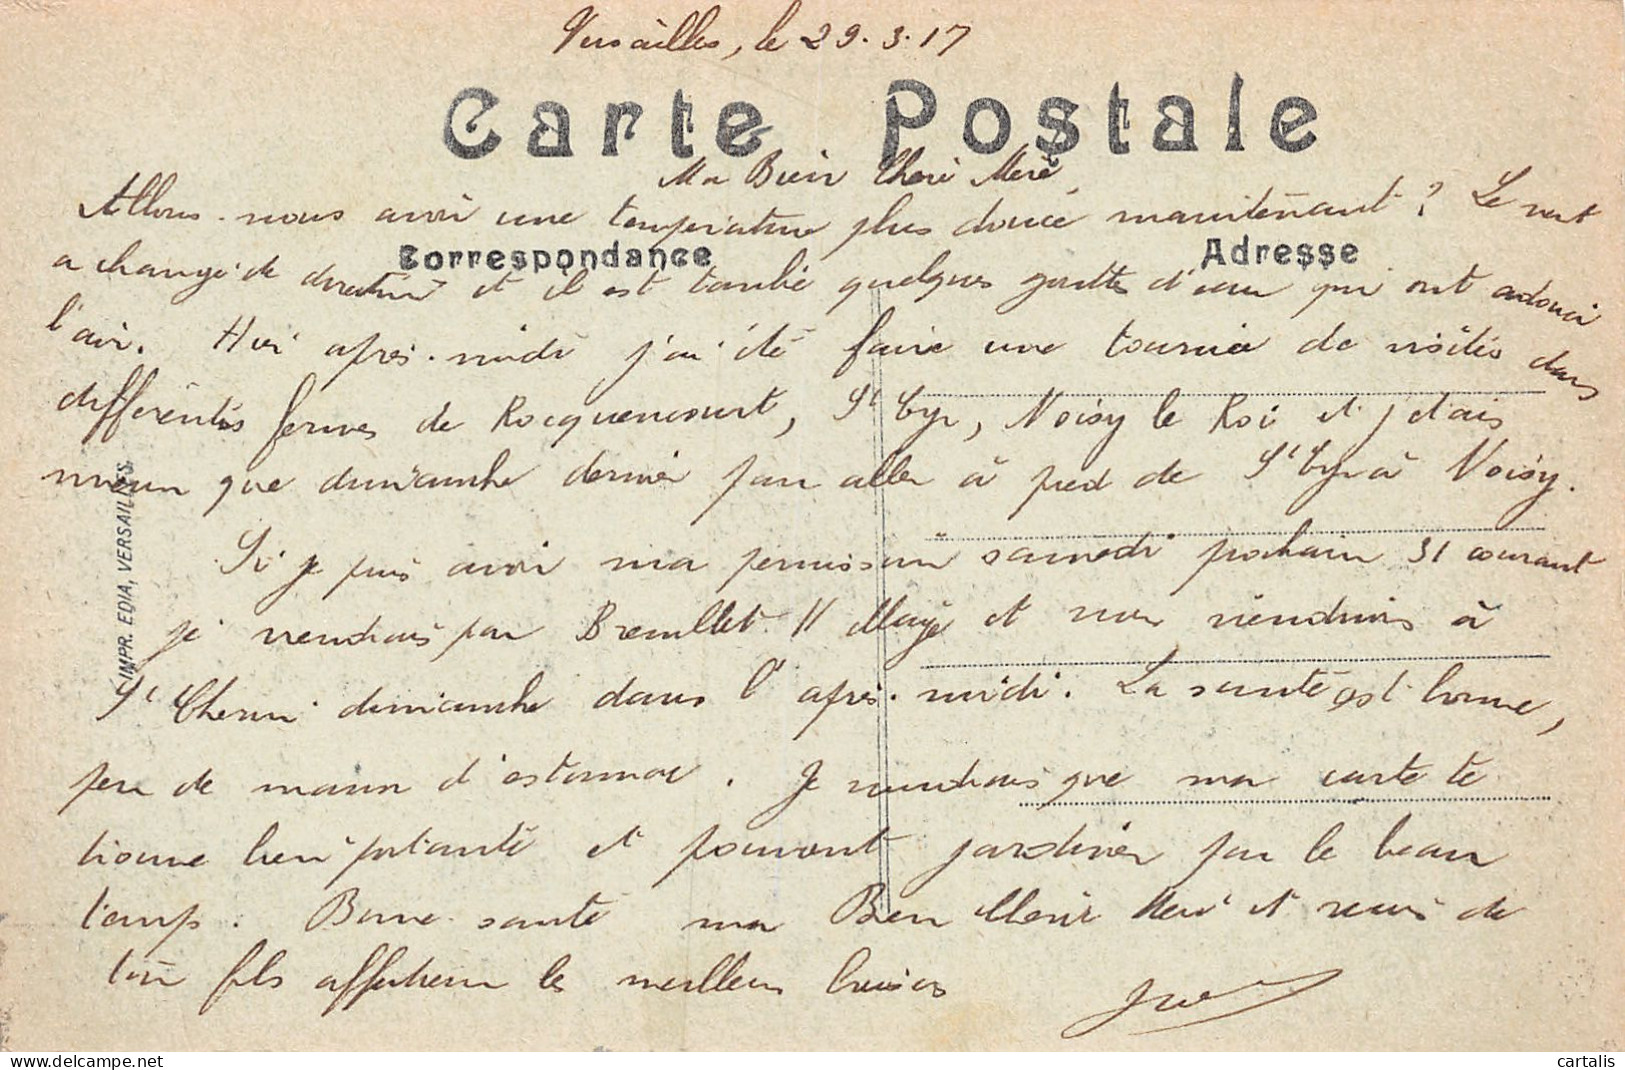 Versailles, le 29.3.17
Carte Postale
Ma Bien Chère Mère,
Allons-nous avoir une température plus douce maintenant ? Le vent
Correspondance
Adresse
a changé de direction et il est tombé quelques gouttes d'eau qui ont adouci
l'air. Hier après-midi j'ai été faire une tournée de visites dans
différentes fermes de Rocquencourt, St Cyr, Noisy le Roi et j'étais
mieux que dimanche dernier pour aller à pied de St Cyr à Noisy.
Si je puis avoir ma permission samedi prochain 31 courant
je viendrais par Breuillet. et nous viendrions à
St Chéron dimanche dans l'après-midi. La santé est bonne,
peu de maux d'estomac. Je voudrais que ma carte te
trouve bien portante et pouvant jardiner par le beau
temps. Bonne santé ma Bien Chère Mère et reçois de
ton fils affectueux les meilleurs baisers
IMPR. EDIA, VERSAILLES.
cartalis